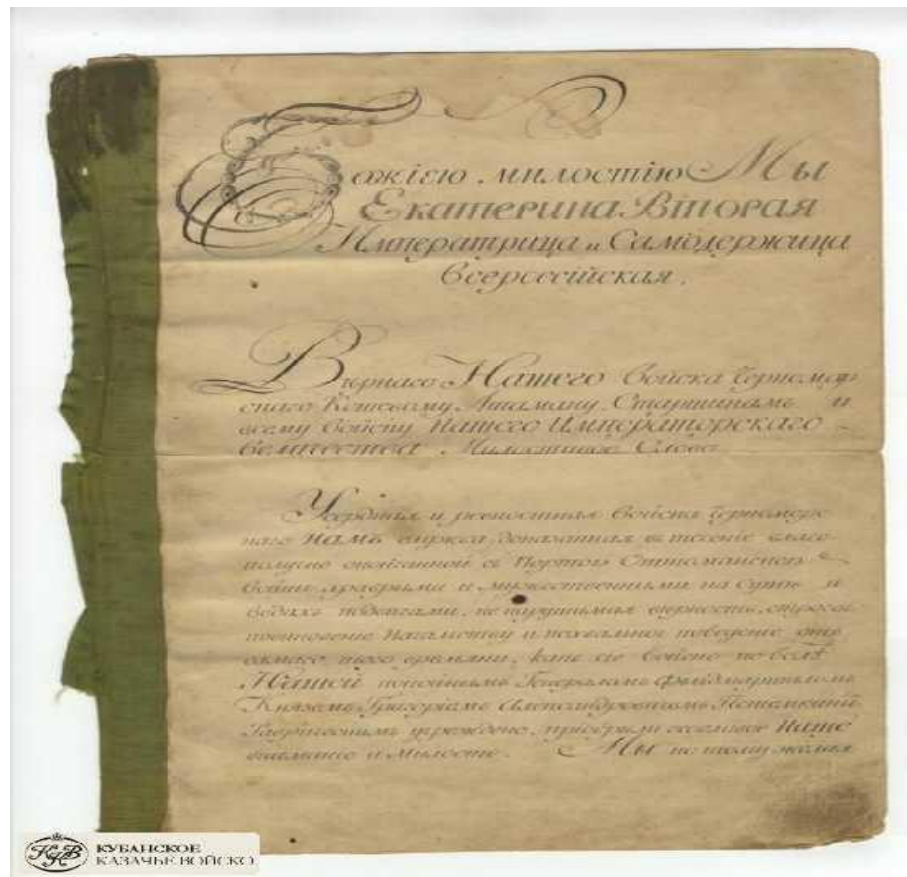 Божіею милостію Мы
Екатерина Вторая
Императрица и Самодержица
Всероссійская.
Вѣрнаго Нашего Войска Черномор
скаго Кошевому Атаману, Старшинамъ и
всему Войску Нашего Императорскаго
Величества Милостивое Слово.
Усердная и ревностная Войска Черномор
скаго Намъ служба, доказанная въ теченіе благо
получно оконченной съ Портою Оттоманскою
войны, храбрыми и мужественными на сушѣ и
водахъ подвигами, не вѣрность, строгое
повиновеніе Начальству и похвальное поведеніе отъ
самаго того времяни, какъ сіе Войско по волѣ
Нашей покойнымъ Генераломъ Фельдмаршаломъ
Княземъ Григоріемъ Александровичемъ Потемкинымъ
Таврическимъ учреждено, пріобрѣли особливое Наше
вниманіе и милость. Мы по тому желая
ККВ
КУБАНСКОЕ
КАЗАЧЬЕ ВОЙСКО